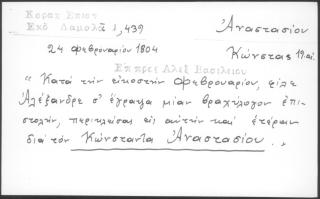 Κοραη Επιστ
Εκδ Δαμαλᾶ 1,439
Ἀναστασίου
24 Φεβρουαρίου 1804
Κώνστας 19 αἰ.
Επ προς Αλεξ Βασιλειου
"Κατά τήν εἰκοστήν Φεβρουαρίου, φίλε
Ἀλέξανδρε σ' ἔγραψα μίαν βραχύλογον ἐπι-
στολήν, περικλείσας εἰς αὐτήν καί ἑτέραν
διά τόν Κώνσταντα Ἀναστασίου . ,